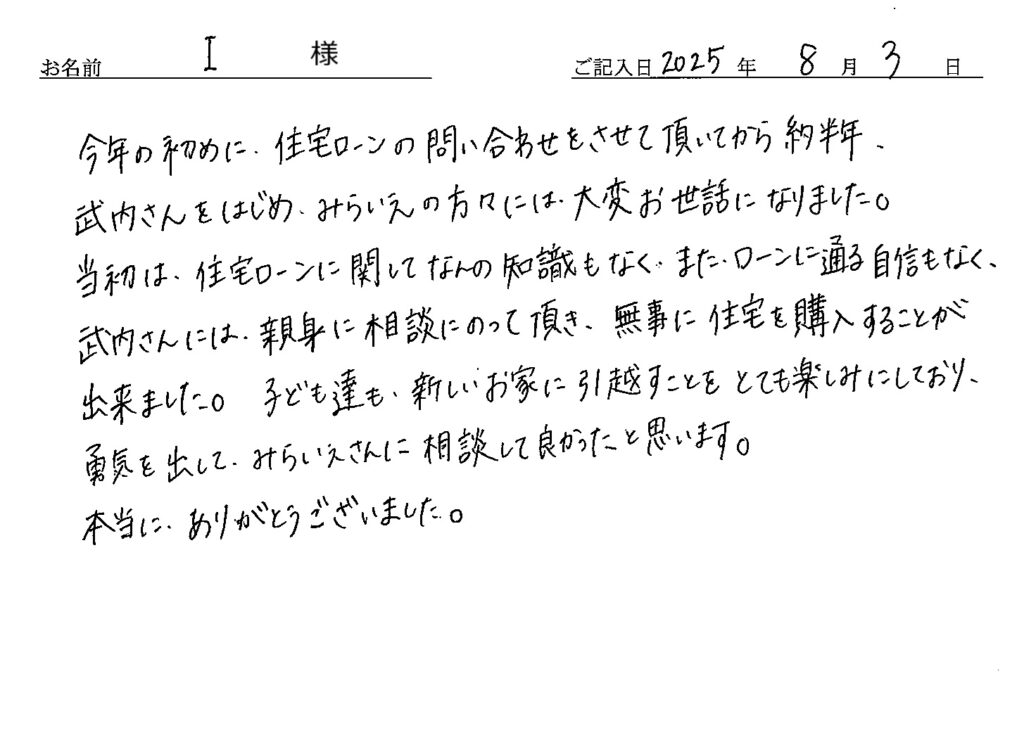 お名前 I 様 ご記入日 2025 年 8 月 3 日
今年の初めに、住宅ローンの問い合わせをさせて頂いてから約半年、
武内さんをはじめ、みらいえの方々には、大変お世話になりました。
当初は、住宅ローンに関してなんの知識もなく、また、ローンに通る自信もなく、
武内さんには、親身に相談にのって頂き、無事に住宅を購入することが
出来ました。子ども達も、新しいお家に引越すことをとても楽しみにしており、
勇気を出して、みらいえさんに相談して良かったと思います。
本当に、ありがとうございました。